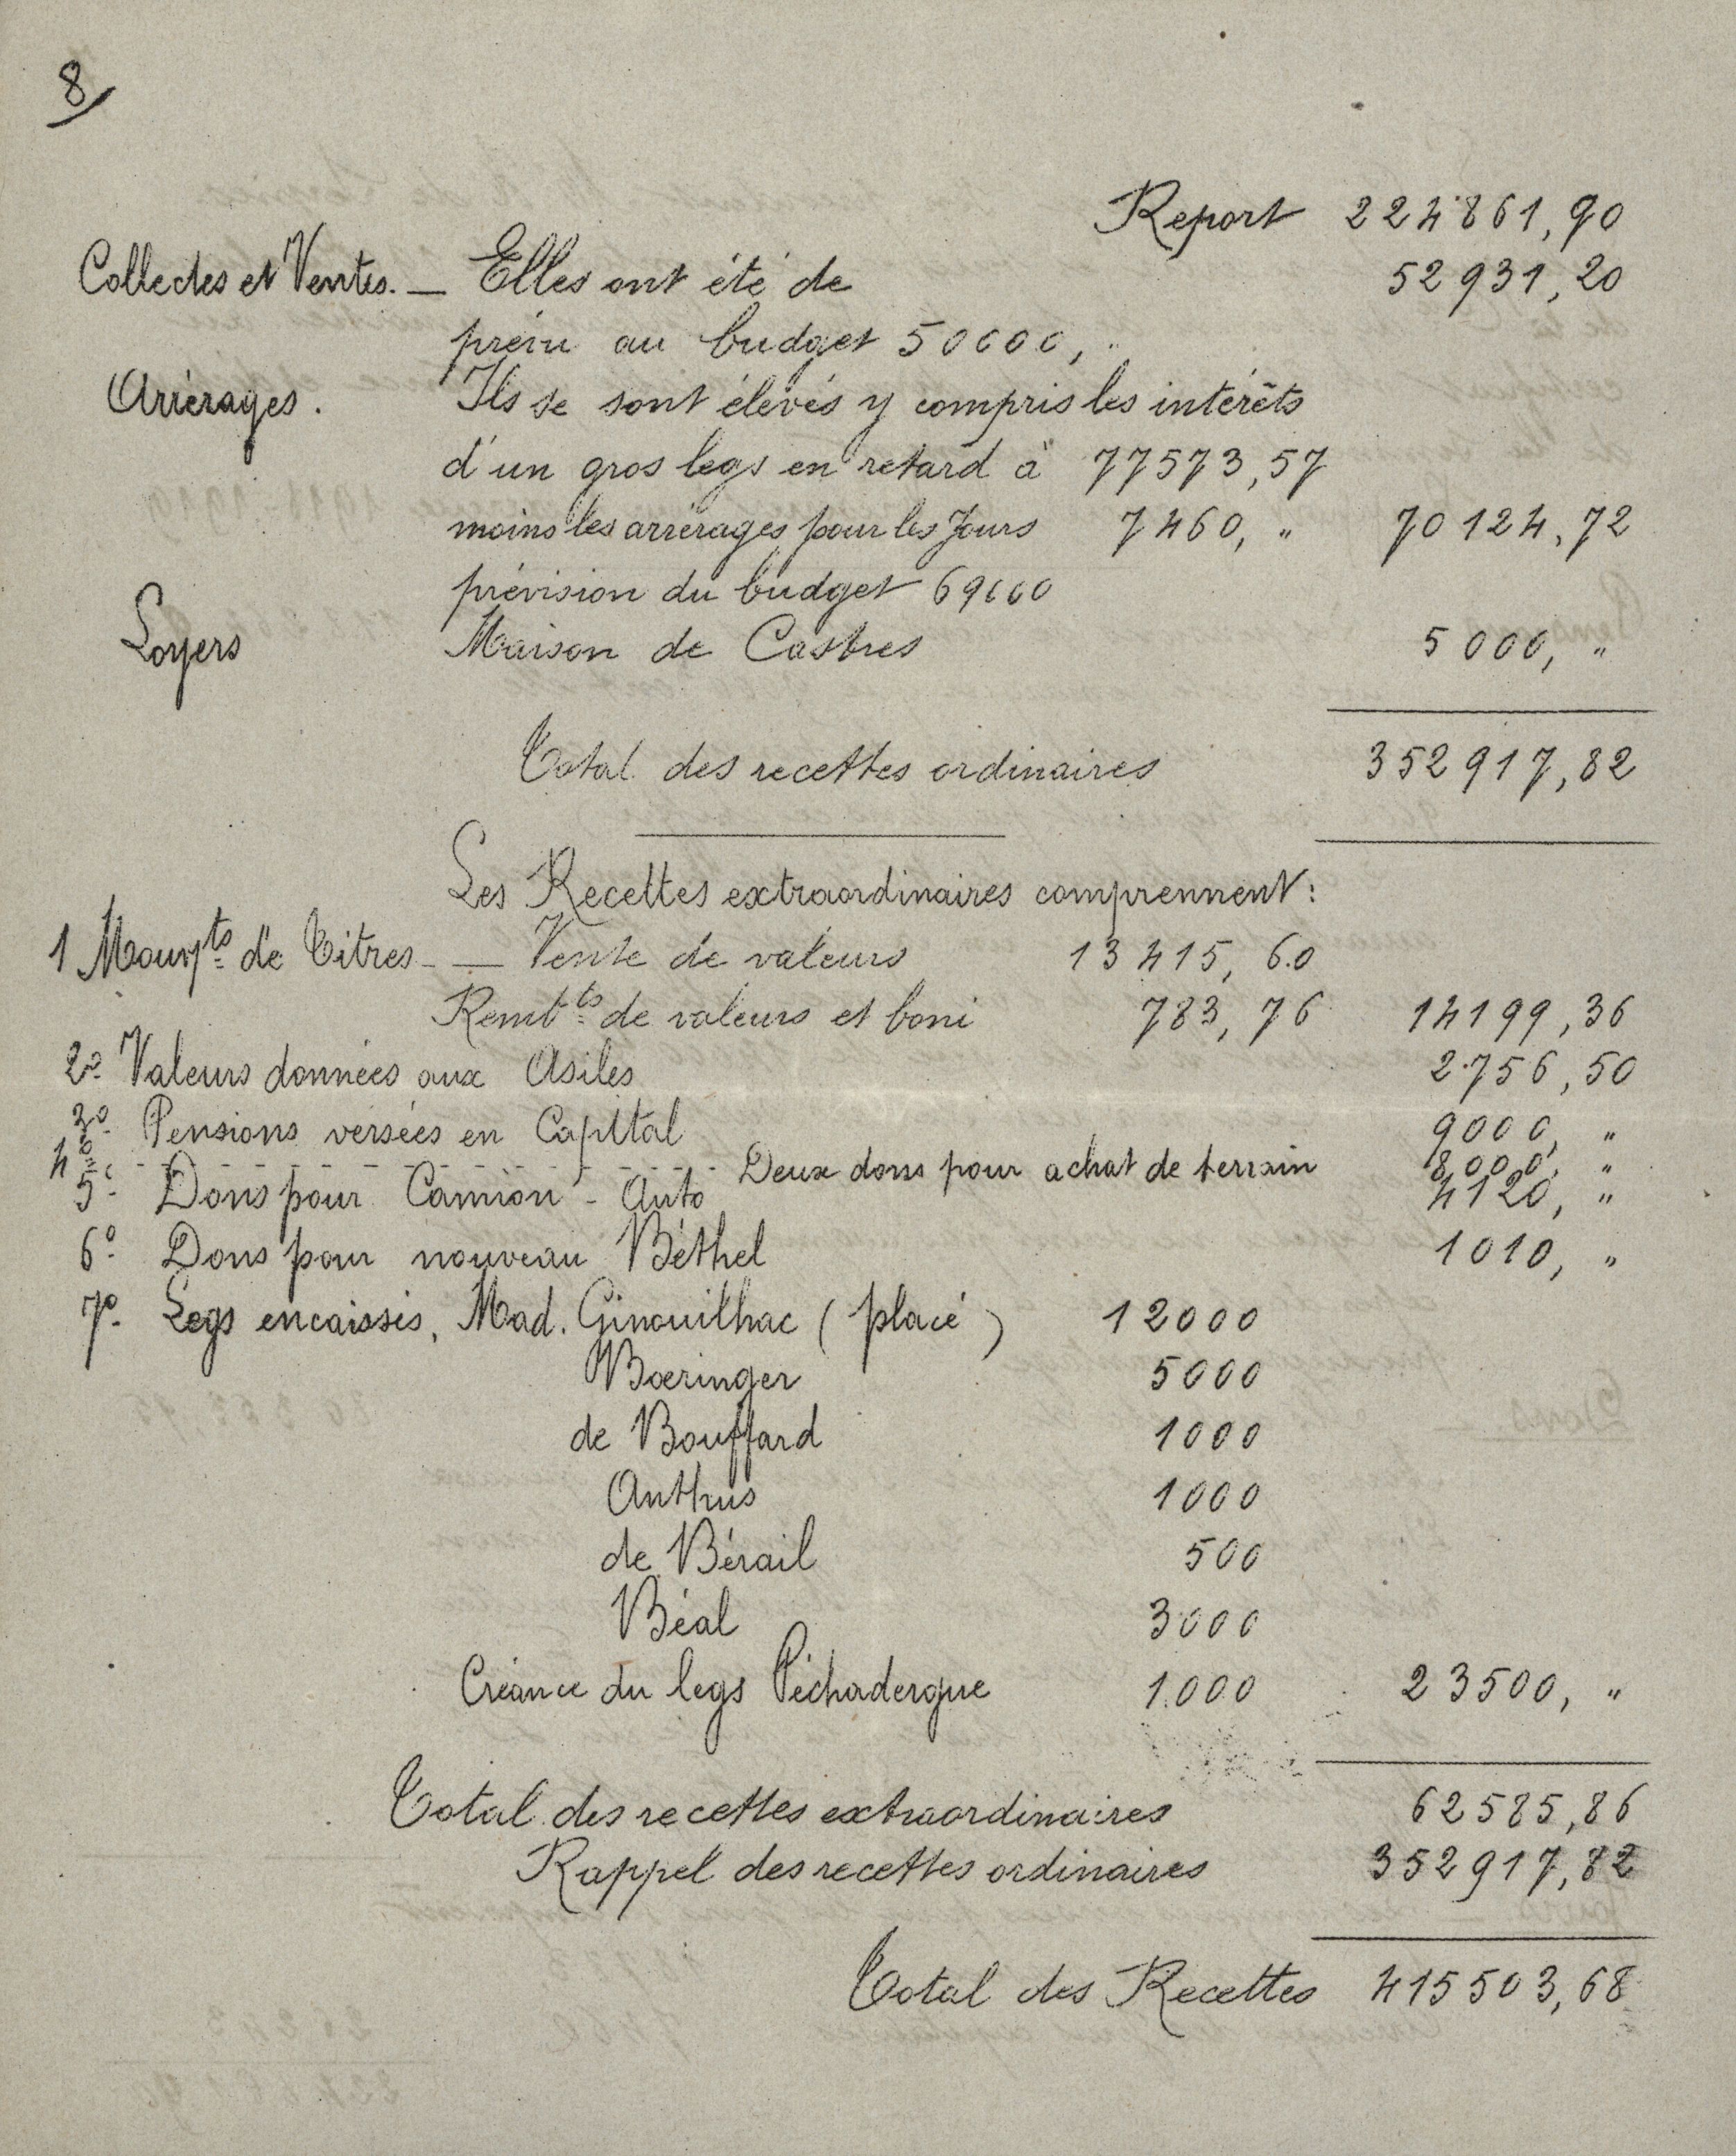 8
Report 224861,90
Collectes et Ventes. — Elles ont été de 52931,20
prévu au budget 50000, "
Arrérages. Ils se sont élevés y compris les intérêts
d'un gros legs en retard à 77573,57
moins les arrérages pour les Jours 7460, " 70124,72
prévision du budget 69000
Loyers Maison de Castres 5000, "
Total des recettes ordinaires 352917,82
Les Recettes extraordinaires comprennent:
1 Mouvts de Titres — Vente de valeurs 13415,60
Rembts de valeurs et boni 783,76 14199,36
2º Valeurs données aux Asiles 2756,50
3º Pensions versées en Capital 9000, "
4º Deux dons pour achat de terrain 8000, "
5º Dons pour Camion - Auto 4120, "
6º Dons pour nouveau Béthel 1010, "
7º Legs encaissés, Mad. Ginouilhac (placé) 12000
Boeringer 5000
de Bouffard 1000
Anthus 1000
de Bérail 500
Béal 3000
Créance du legs Péchadergue 1000 23500, "
Total des recettes extraordinaires 62585,86
Rappel des recettes ordinaires 352917,82
Total des Recettes 415503,68